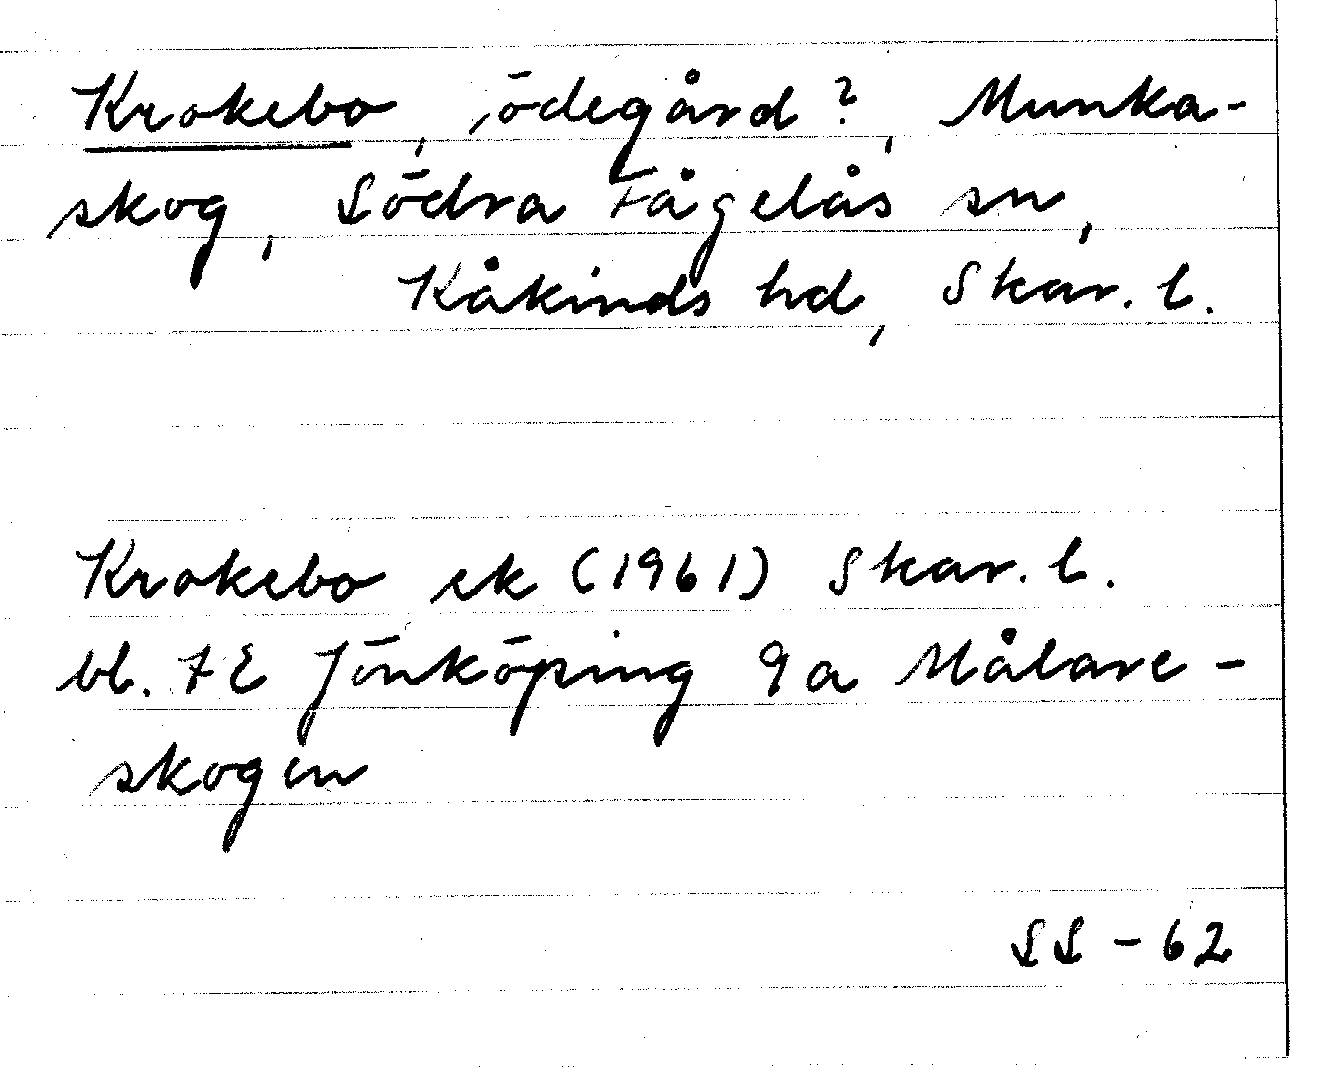 Krokebo, ödegård?, Munka-
skog, Södra Fågelås sn,
Kåkinds hd, Skar. l.
Krokebo ek (1961) Skar. l.
bl. 7E Jönköping 9a Målare-
skogen
SS - 62